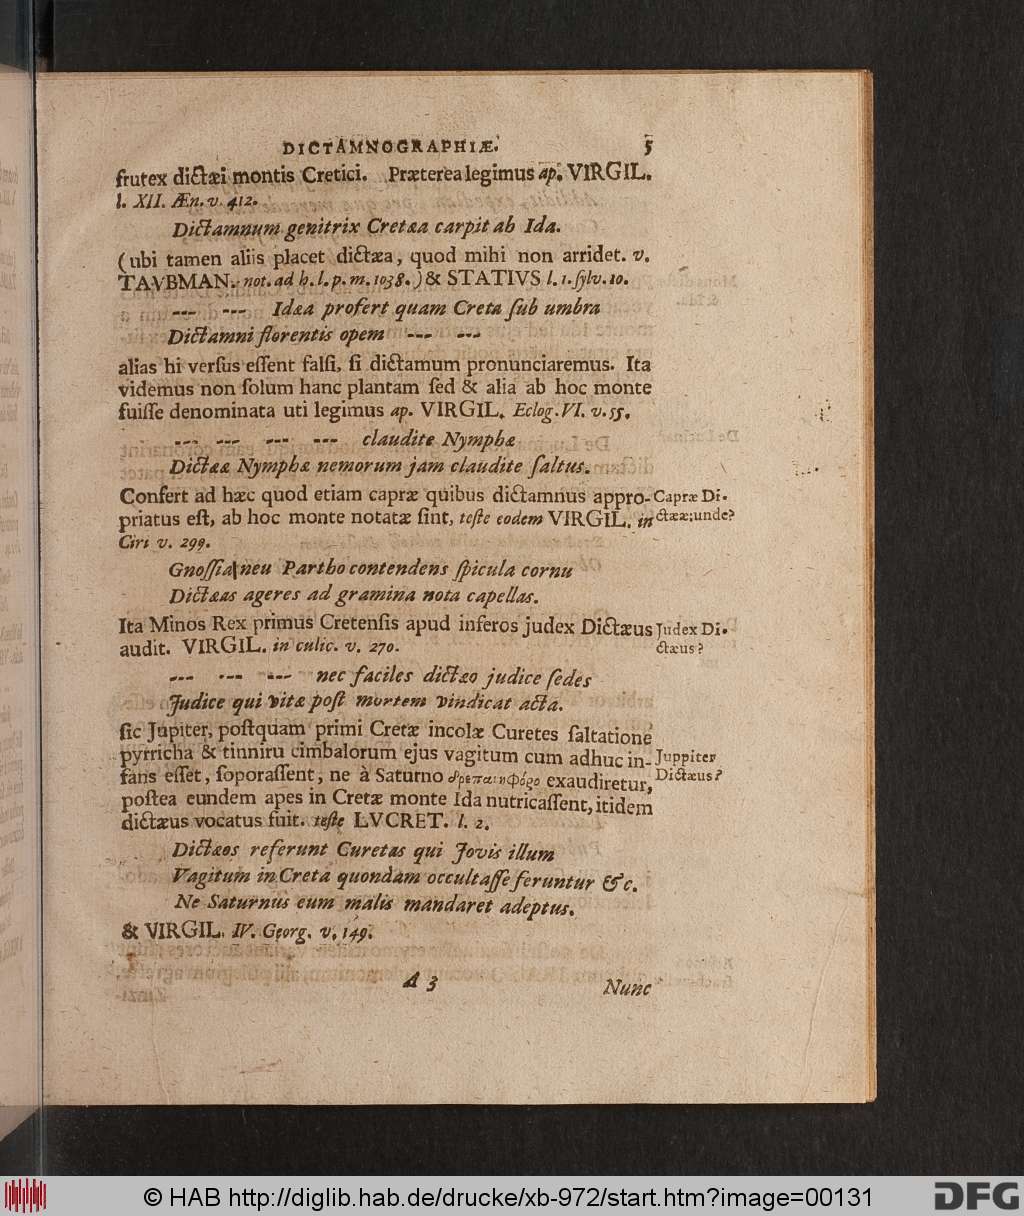 DICTAMNOGRAPHIÆ. 5
frutex dictæi montis Cretici. Præterea legimus ap. VIRGIL.
l. XII. Æn. v. 412.
Dictamnum genitrix Cretæa carpit ab Ida.
(ubi tamen aliis placet dictæa, quod mihi non arridet. v.
TAVBMAN. not. ad h. l. p. m. 1038.) & STATIVS l. 1. ſylv. 10.
--- --- Idæa profert quam Creta ſub umbra
Dictamni florentis opem --- ---
alias hi verſus eſſent falſi, ſi dictamum pronunciaremus. Ita
videmus non ſolum hanc plantam ſed & alia ab hoc monte
fuiſſe denominata uti legimus ap. VIRGIL. Eclog. VI. v. 55.
--- --- --- --- claudite Nymphæ
Dictææ Nymphæ nemorum jam claudite ſaltus.
Confert ad hæc quod etiam capræ quibus dictamnus appro-
Capræ Di-
priatus eſt, ab hoc monte notatæ ſint, teſte eodem VIRGIL. in
ctææ; unde?
Ciri v. 299.
Gnoſſia neu Partho contendens ſpicula cornu
Dictæas ageres ad gramina nota capellas.
Ita Minos Rex primus Cretenſis apud inferos judex Dictæus
Judex Di-
audit. VIRGIL. in culic. v. 270.
ctæus?
--- --- --- nec faciles dictæo judice ſedes
Judice qui vitæ poſt mortem vindicat acta.
ſic Jupiter, poſtquam primi Cretæ incolæ Curetes ſaltatione
pyrricha & tinniru cimbalorum ejus vagitum cum adhuc in-
Juppiter
fans eſſet, ſoporaſſent, ne à Saturno exaudiretur,
Dictæus?
poſtea eundem apes in Cretæ monte Ida nutricaſſent, itidem
dictæus vocatus fuit. teſte LVCRET. l. 2.
Dictæos referunt Curetas qui Jovis illum
Vagitum in Creta quondam occultaſſe feruntur &c.
Ne Saturnus eum malis mandaret adeptus.
& VIRGIL. IV. Georg. v. 149.
A 3
Nunc
© HAB http://diglib.hab.de/drucke/xb-972/start.htm?image=00131
DFG